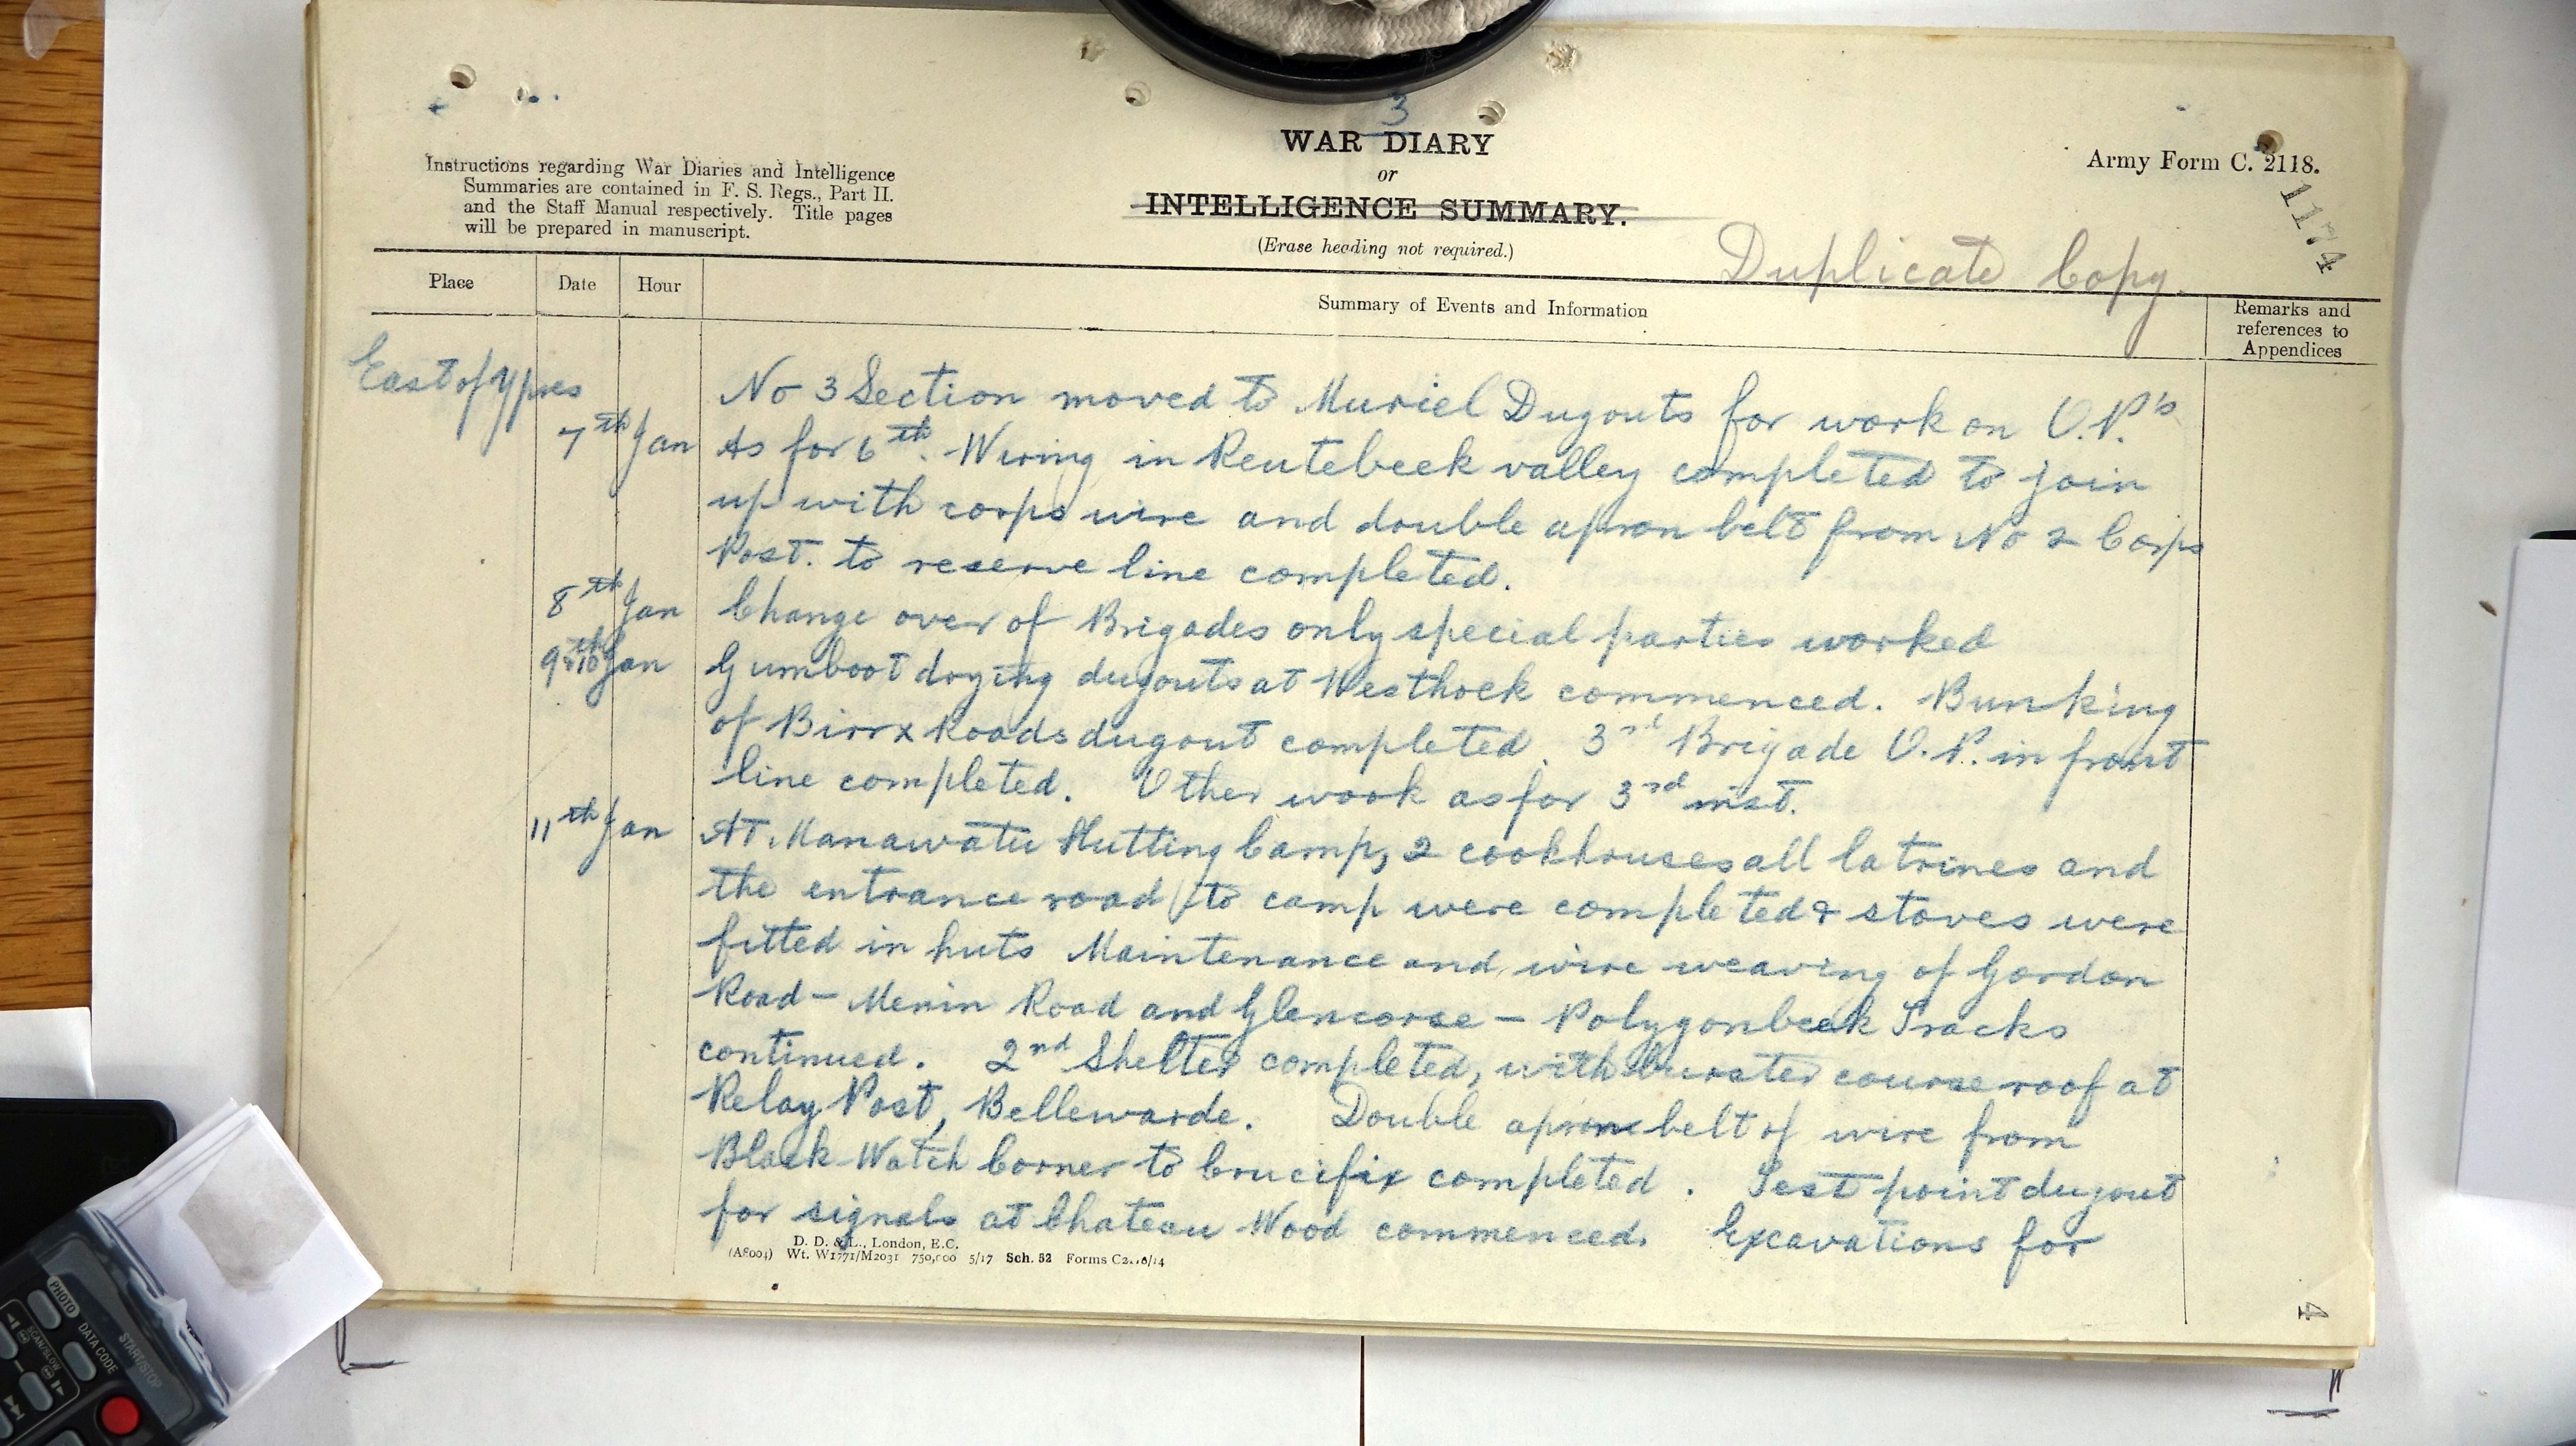 3
WAR DIARY
or
INTELLIGENCE SUMMARY.
(Erase heading not required.)
Instructions regarding War Diaries and Intelligence
Summaries are contained in F. S. Regs., Part II.
and the Staff Manual respectively. Title pages
will be prepared in manuscript.
Army Form C. 2118.
1174
Duplicate Copy.
Place Date Hour Summary of Events and Information
Remarks and
references to
Appendices
East of Ypres
No 3 Section moved to Muriel Dugouts for work on O.P.'s
7th Jan As for 6th. Wiring in Reutebeek valley completed to join
up with corps wire and double apron belt from No 2 Corps
Post. to reserve line completed.
8th Jan Change over of Brigades only special parties worked
9th & 10 Jan Gumboot drying dugouts at Westhoek commenced. Bunking
of Birr x Roads dugout completed. 3rd Brigade O.P. in front
line completed. Other work as for 3rd inst.
11th Jan At Manawatu Hutting Camp, 2 cookhouses all latrines and
the entrance road to camp were completed & stoves were
fitted in huts Maintenance and wire weaving of Gordon
Road - Menin Road and Glencorse - Polygonbeek Tracks
continued. 2nd Shelter completed, with burster course roof at
Relay Post, Bellewarde. Double apron belt of wire from
Black Watch Corner to Crucifix completed. Test point dugout
for signals at Chateau Wood commenced. Excavations for
D. D. & L., London, E.C.
(A8004) Wt. W1771/M2031 750,000 5/17 Sch. 52 Forms C2118/14
4
PHOTO
DATA CODE
START/STOP
SCAN/SLOW